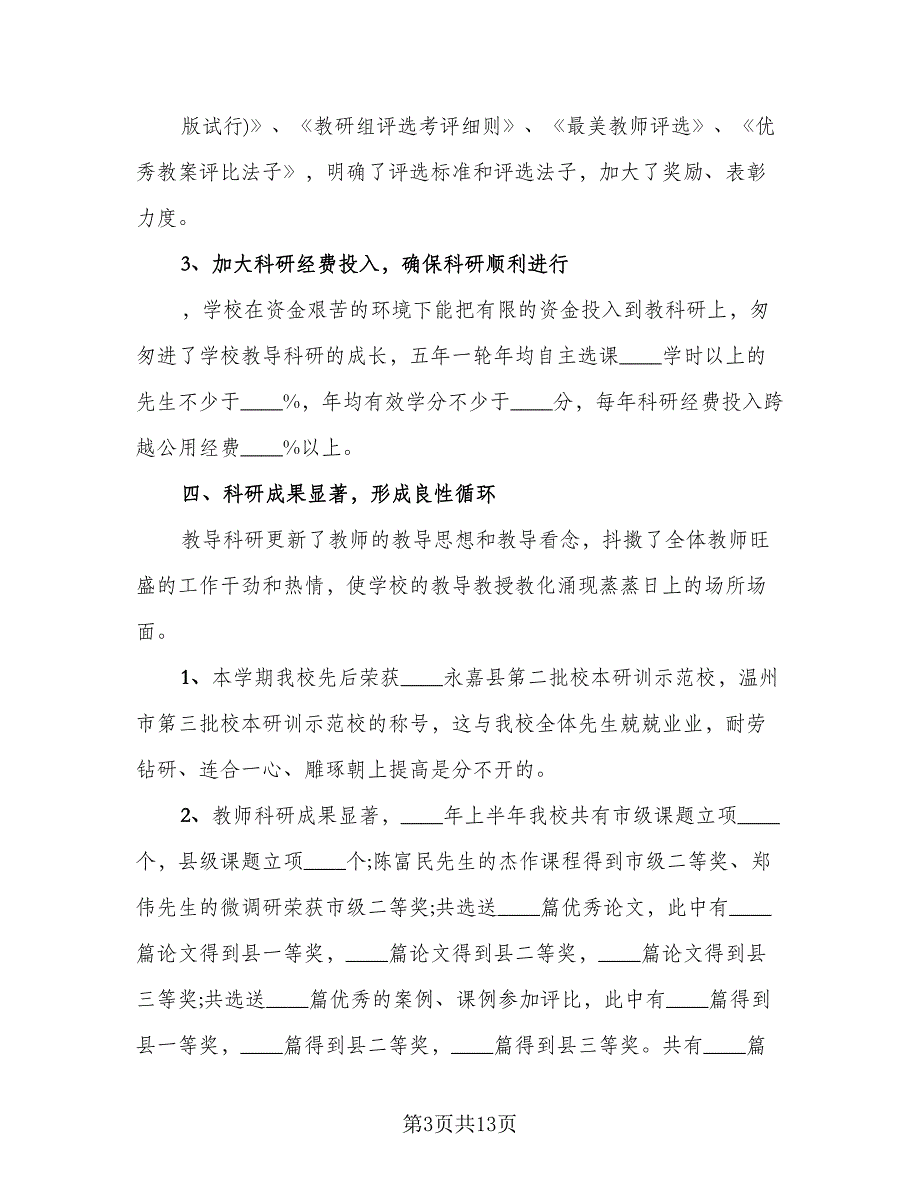 版试行)》、《教研组评选考评细则》、《最美教师评选》、《优
秀教案评比法子》，明确了评选标准和评选法子，加大了奖励、表彰
力度。
3、加大科研经费投入，确保科研顺利进行
，学校在资金艰苦的环境下能把有限的资金投入到教科研上，匆
匆进了学校教导科研的成长，五年一轮年均自主选课____学时以上的
先生不少于____%，年均有效学分不少于____分，每年科研经费投入跨
越公用经费____%以上。
四、科研成果显著，形成良性循环
教导科研更新了教师的教导思想和教导看念，抖擞了全体教师旺
盛的工作干劲和热情，使学校的教导教授教化涌现蒸蒸日上的场所场
面。
1、本学期我校先后荣获____永嘉县第二批校本研训示范校，温州
市第三批校本研训示范校的称号，这与我校全体先生兢兢业业，耐劳
钻研、连合一心、雕琢朝上提高是分不开的。
2、教师科研成果显著，____年上半年我校共有市级课题立项____
个，县级课题立项____个;陈富民先生的杰作课程得到市级二等奖、郑
伟先生的微调研荣获市级二等奖;共选送____篇优秀论文，此中有____
篇论文得到县一等奖，____篇论文得到县二等奖，____篇论文得到县
三等奖;共选送____篇优秀的案例、课例参加评比，此中有____篇得到
县一等奖，____篇得到县二等奖，____篇得到县三等奖。共有____篇
第3页共13页